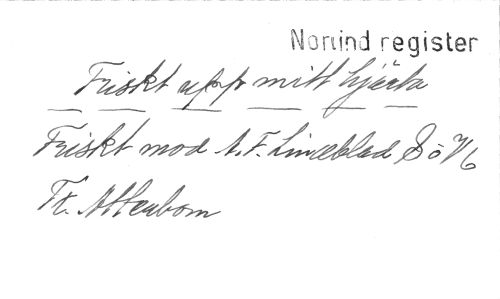 Norlind register
Friskt upp mitt hjärta
Friskt mod A. F. Lindblad
Tx. Atterbom